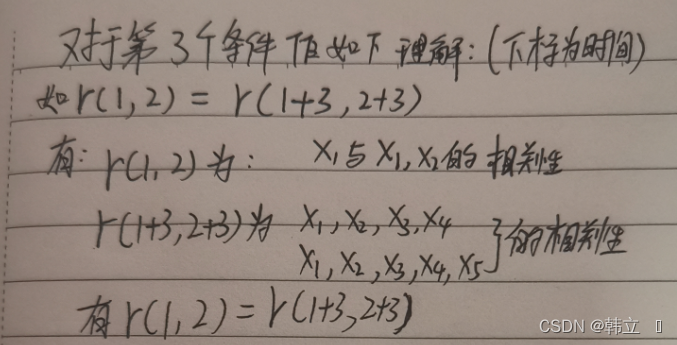 对于第3个条件作如下理解:(下标为时间)
如r(1,2) = r(1+3,2+3)
有: r(1,2)为: X₁与X₁,X₂的相关性
r(1+3,2+3)为 X₁,X₂,X₃,X₄
X₁,X₂,X₃,X₄,X₅ }的相关性
有r(1,2) = r(1+3,2+3)
CSDN @韩立